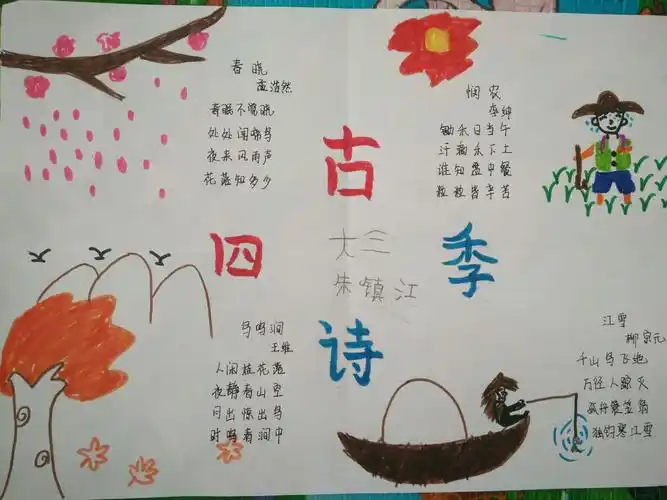 春晓
孟浩然
春眠不觉晓
处处闻啼鸟
夜来风雨声
花落知多少
悯农
李绅
锄禾日当午
汗滴禾下土
谁知盘中餐
粒粒皆辛苦
古
四
季
诗
大三
朱镇江
鸟鸣涧
王维
人闲桂花落
夜静春山空
月出惊山鸟
时鸣春涧中
江雪
柳宗元
千山鸟飞绝
万径人踪灭
孤舟蓑笠翁
独钓寒江雪